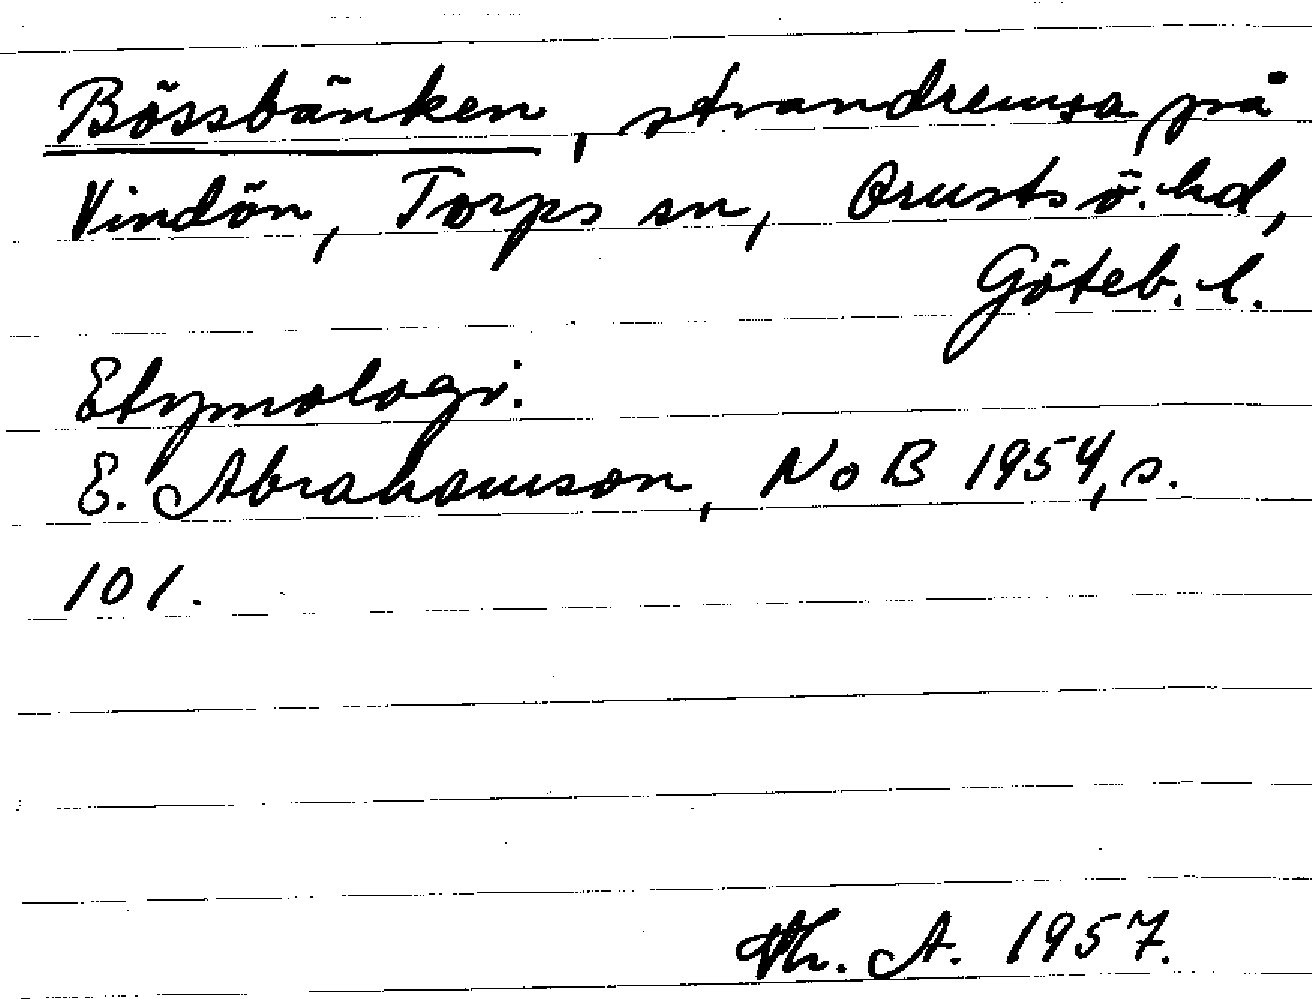 Bössbänken, strandremsa på
Vindön, Torps sn, Orusts ö. hd,
Göteb. l.
Etymologi:
E. Abrahamson, NoB 1954, s.
101.
Th. A. 1957.